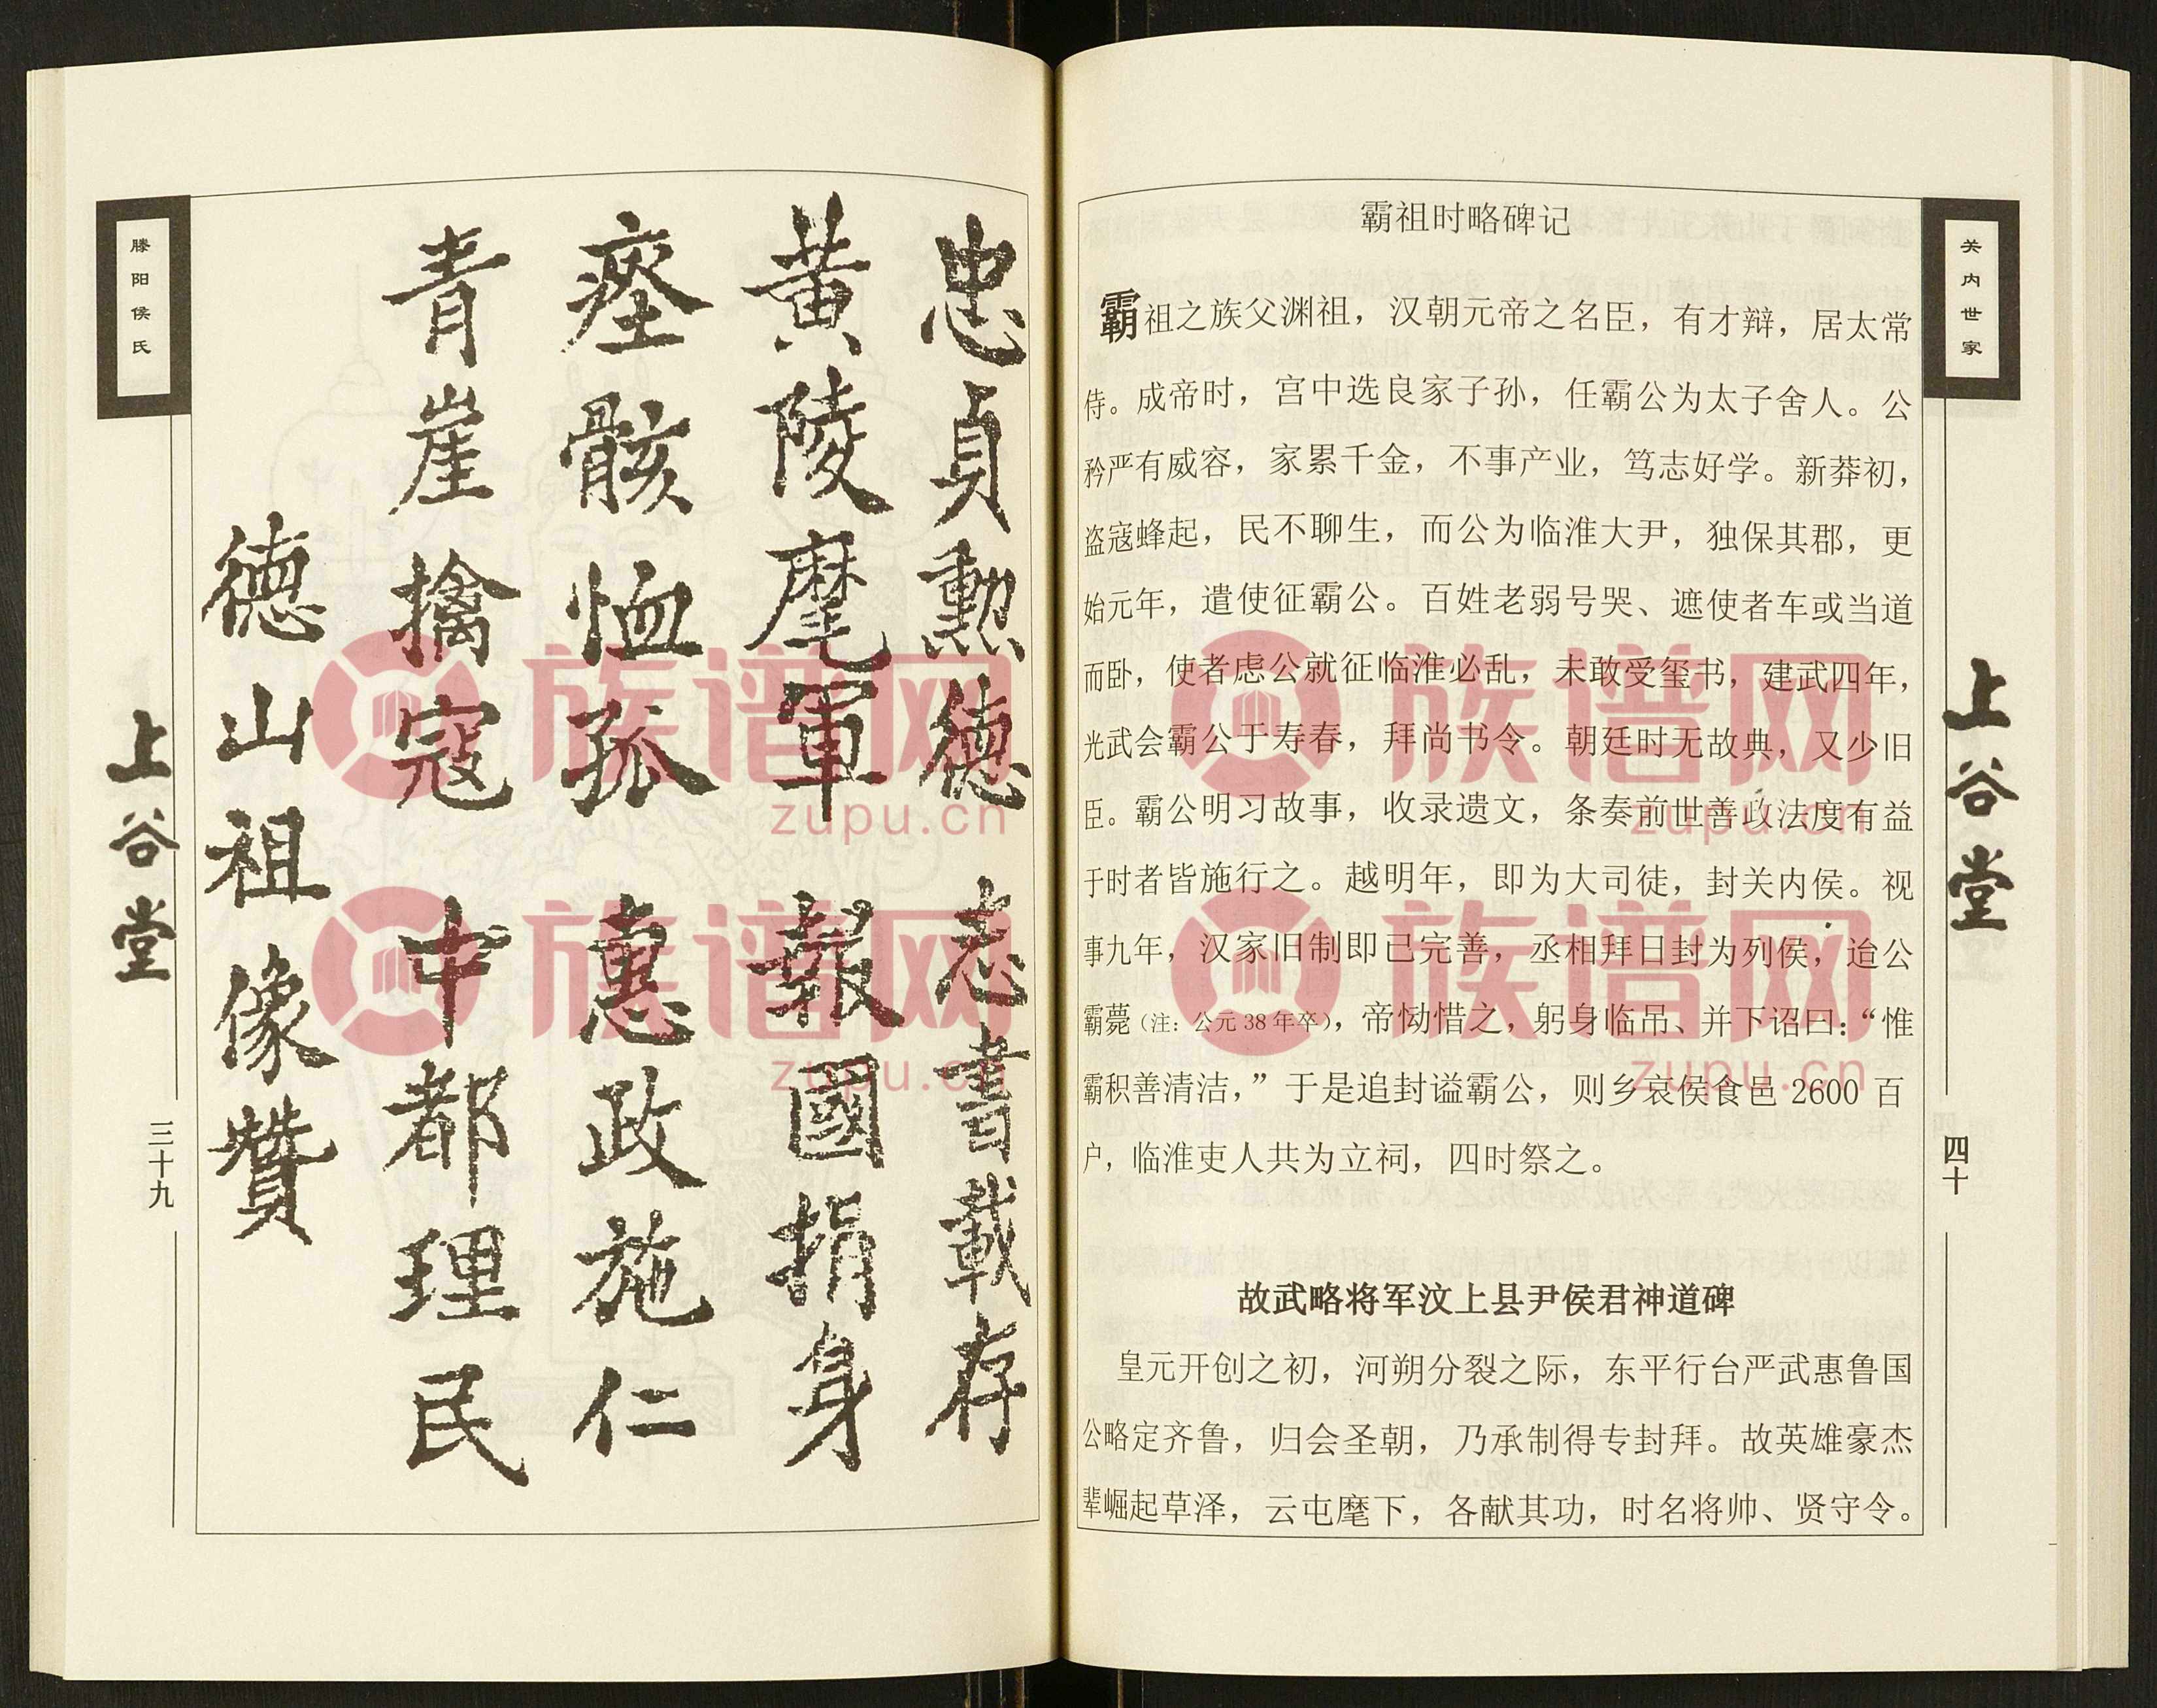 滕阳侯氏
上谷堂
三十九
忠貞勲德 志書載存
黄陵麾軍 報國捐身
瘞骸恤孤 惠政施仁
青崖擒寇 中都理民
德山祖像贊
关内世家
上谷堂
四十
霸祖时略碑记
霸祖之族父渊祖，汉朝元帝之名臣，有才辩，居太常
侍。成帝时，宫中选良家子孙，任霸公为太子舍人。公
矜严有威容，家累千金，不事产业，笃志好学。新莽初，
盗寇蜂起，民不聊生，而公为临淮大尹，独保其郡，更
始元年，遣使征霸公。百姓老弱号哭、遮使者车或当道
而卧，使者虑公就征临淮必乱，未敢受玺书，建武四年，
光武会霸公于寿春，拜尚书令。朝廷时无故典，又少旧
臣。霸公明习故事，收录遗文，条奏前世善政法度有益
于时者皆施行之。越明年，即为大司徒，封关内侯。视
事九年，汉家旧制即已完善，丞相拜日封为列侯，迨公
霸薨（注：公元38年卒），帝恸惜之，躬身临吊、并下诏曰：“惟
霸积善清洁，”于是追封谥霸公，则乡哀侯食邑 2600 百
户，临淮吏人共为立祠，四时祭之。
故武略将军汶上县尹侯君神道碑
皇元开创之初，河朔分裂之际，东平行台严武惠鲁国
公略定齐鲁，归会圣朝，乃承制得专封拜。故英雄豪杰
辈崛起草泽，云屯麾下，各献其功，时名将帅、贤守令。
族谱网
zupu.cn
族谱网
zupu.cn
族谱网
zupu.cn
族谱网
zupu.cn